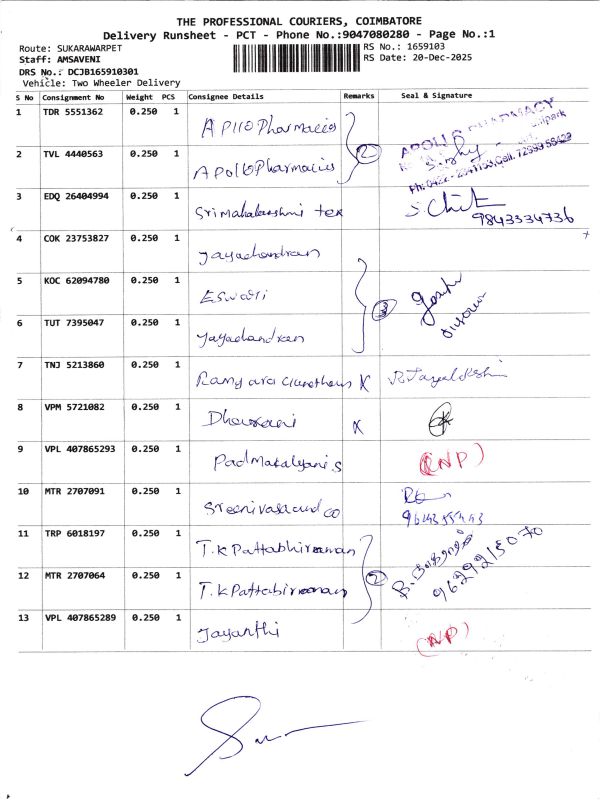 THE PROFESSIONAL COURIERS, COIMBATORE
Delivery Runsheet - PCT - Phone No.:9047080280 - Page No.:1
Route: SUKARAWARPET
RS No.: 1659103
Staff: AMSAVENI
RS Date: 20-Dec-2025
DRS No.: DCJB165910301
Vehicle: Two Wheeler Delivery
S No Consignment No Weight PCS Consignee Details Remarks Seal & Signature
1 TDR 5551362 0.250 1 Apllo Pharmacies
2 TVL 4440563 0.250 1 Apollo Pharmacies 2
APOLLO PHARMACY
3 EDQ 26404994 0.250 1 Sri Mahalakshmi tex
9843334736
4 COK 23753827 0.250 1 Jayachandran
5 KOC 62094780 0.250 1 Eswari 3
6 TUT 7395047 0.250 1 Jayachandran
7 TNJ 5213860 0.250 1 Ramyara x
8 VPM 5721082 0.250 1 Dharani x
9 VPL 407865293 0.250 1 Padmakalyani S (NP)
10 MTR 2707091 0.250 1 Sreenivasa and co
11 TRP 6018197 0.250 1 T.K Pattabhiraman
12 MTR 2707064 0.250 1 T.K Pattabiraman 2
9629215070
13 VPL 407865289 0.250 1 Jayanthi (NP)